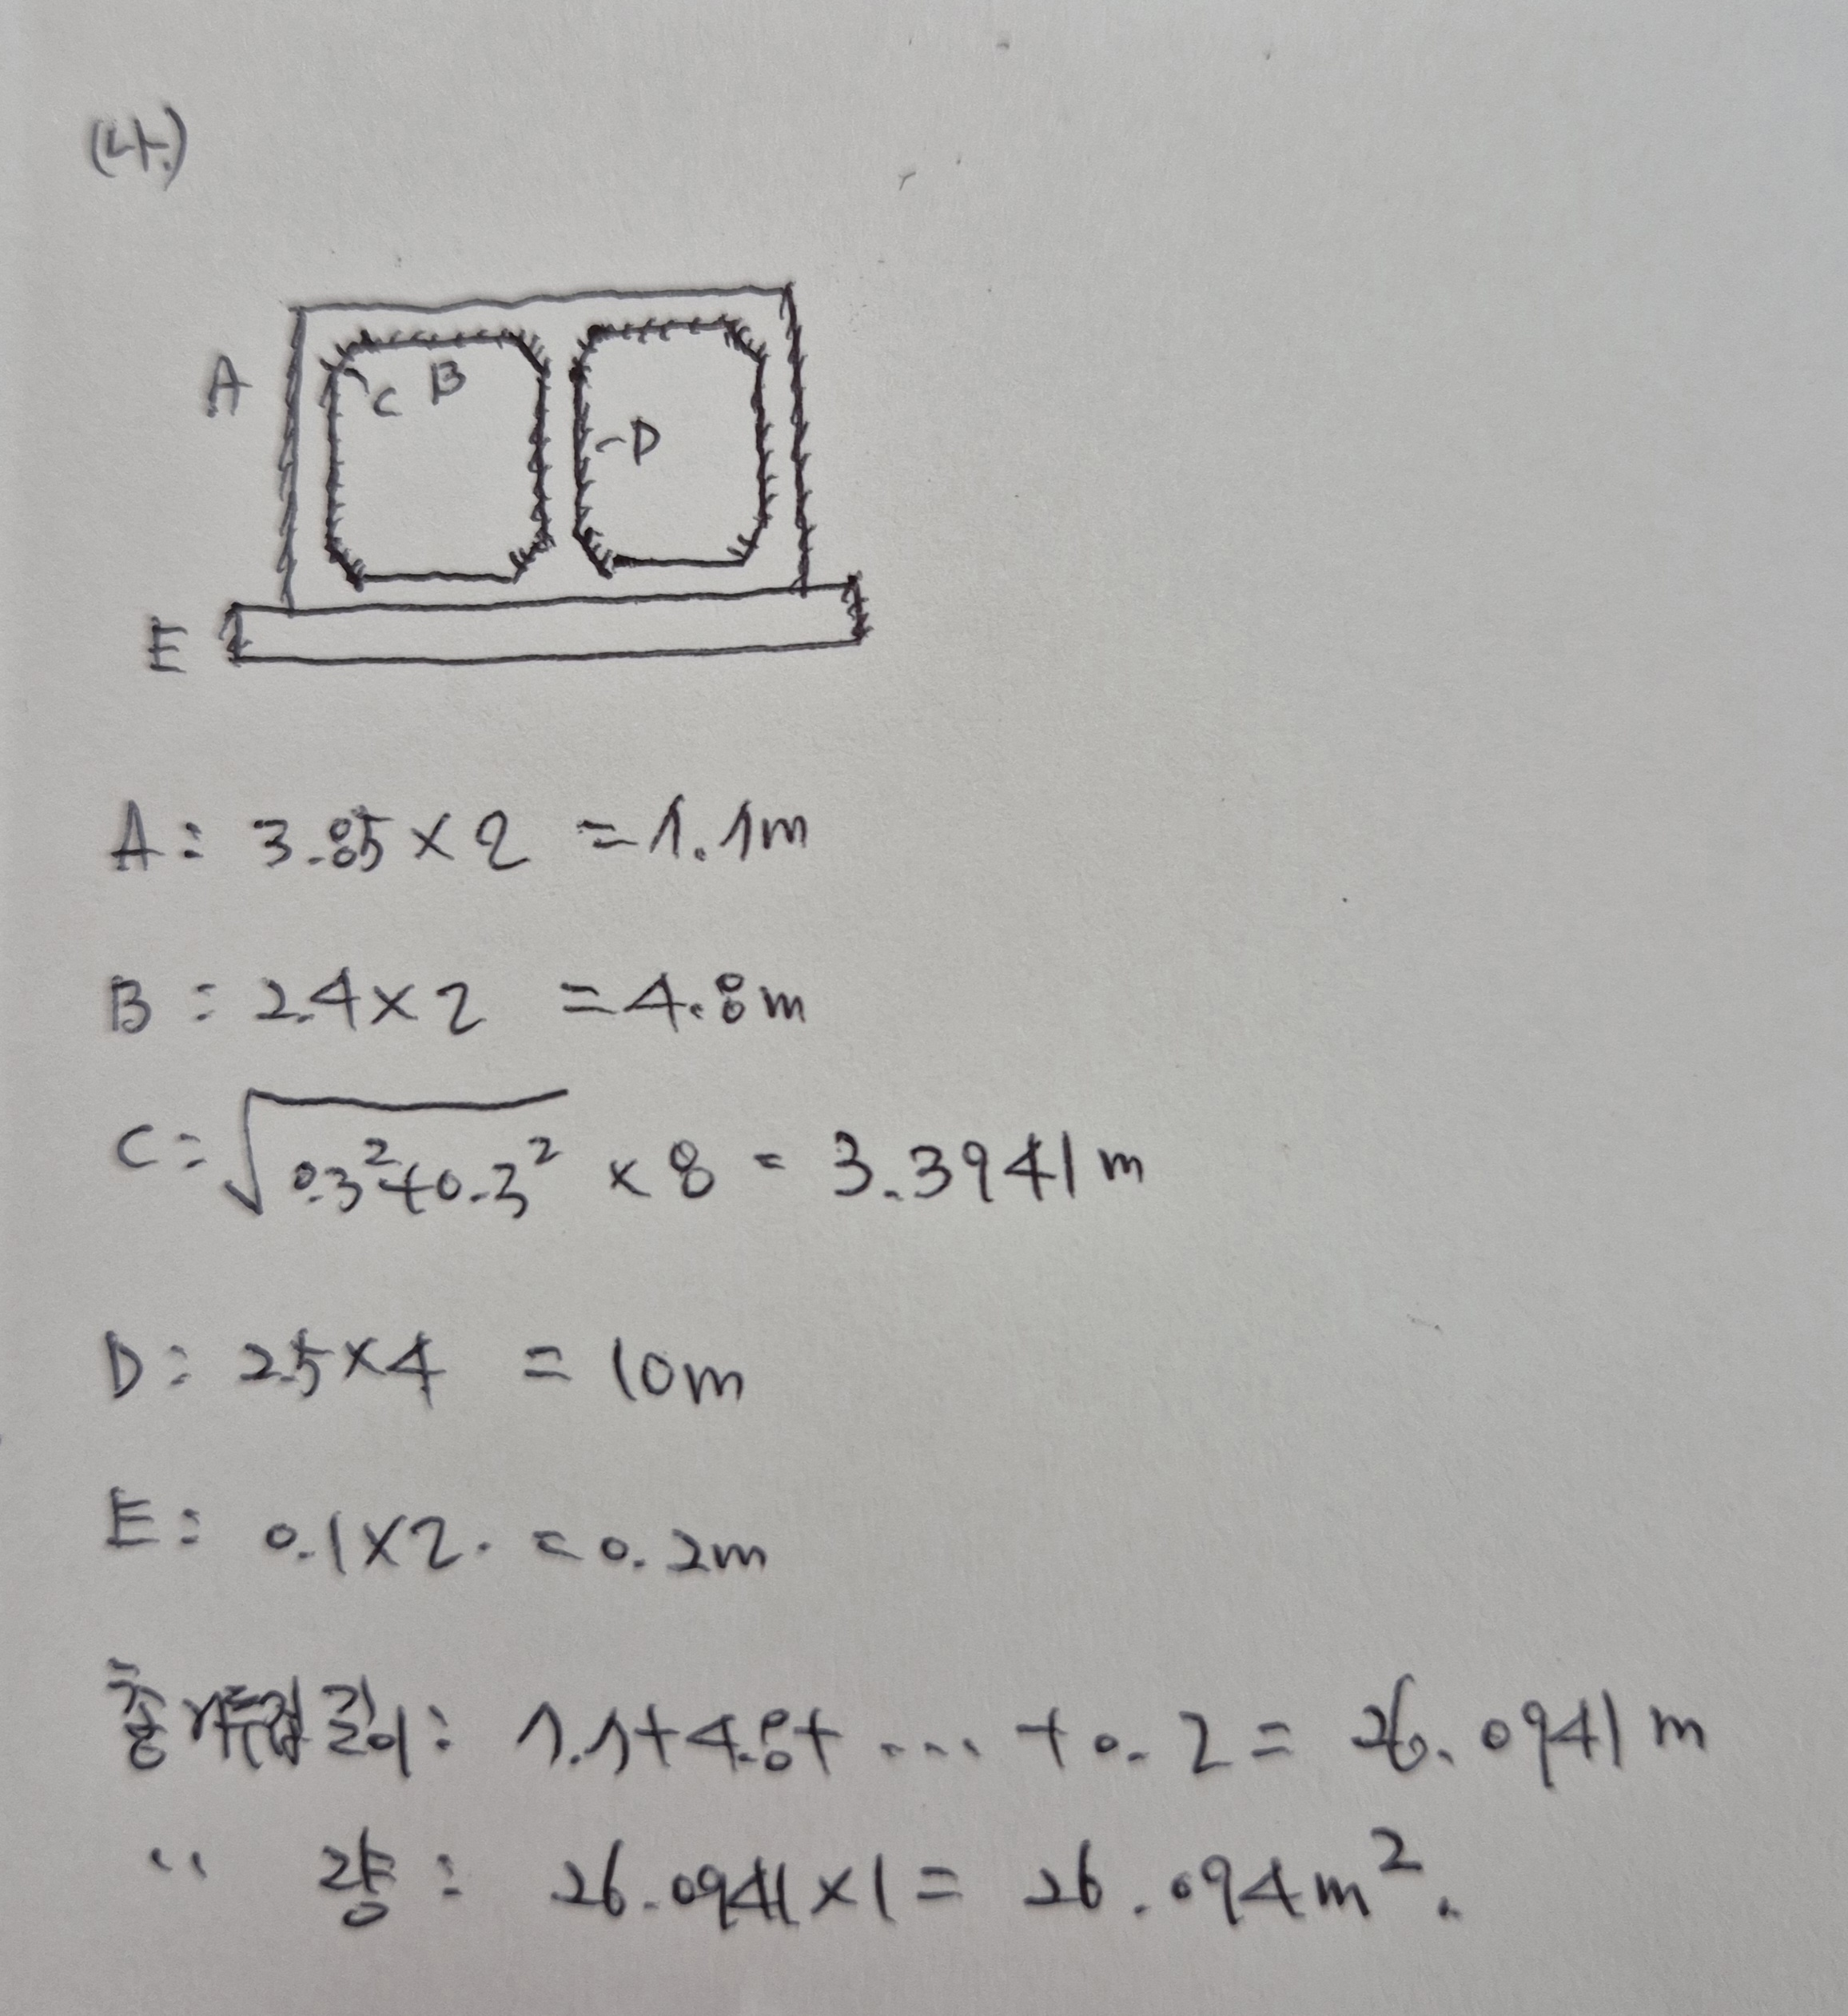 (4.)
A
C B
-D
E
A : 3.85 × 2 = 7.7m
B : 2.4 × 2 = 4.8m
C = √0.3²+0.3² × 8 = 3.3941m
D : 2.5 × 4 = 10m
E : 0.1 × 2. = 0.2m
총 거푸집 길이 : 7.7+4.8+ ... +0.2 = 26.0941m
〃 량 : 26.0941×1 = 26.094m².